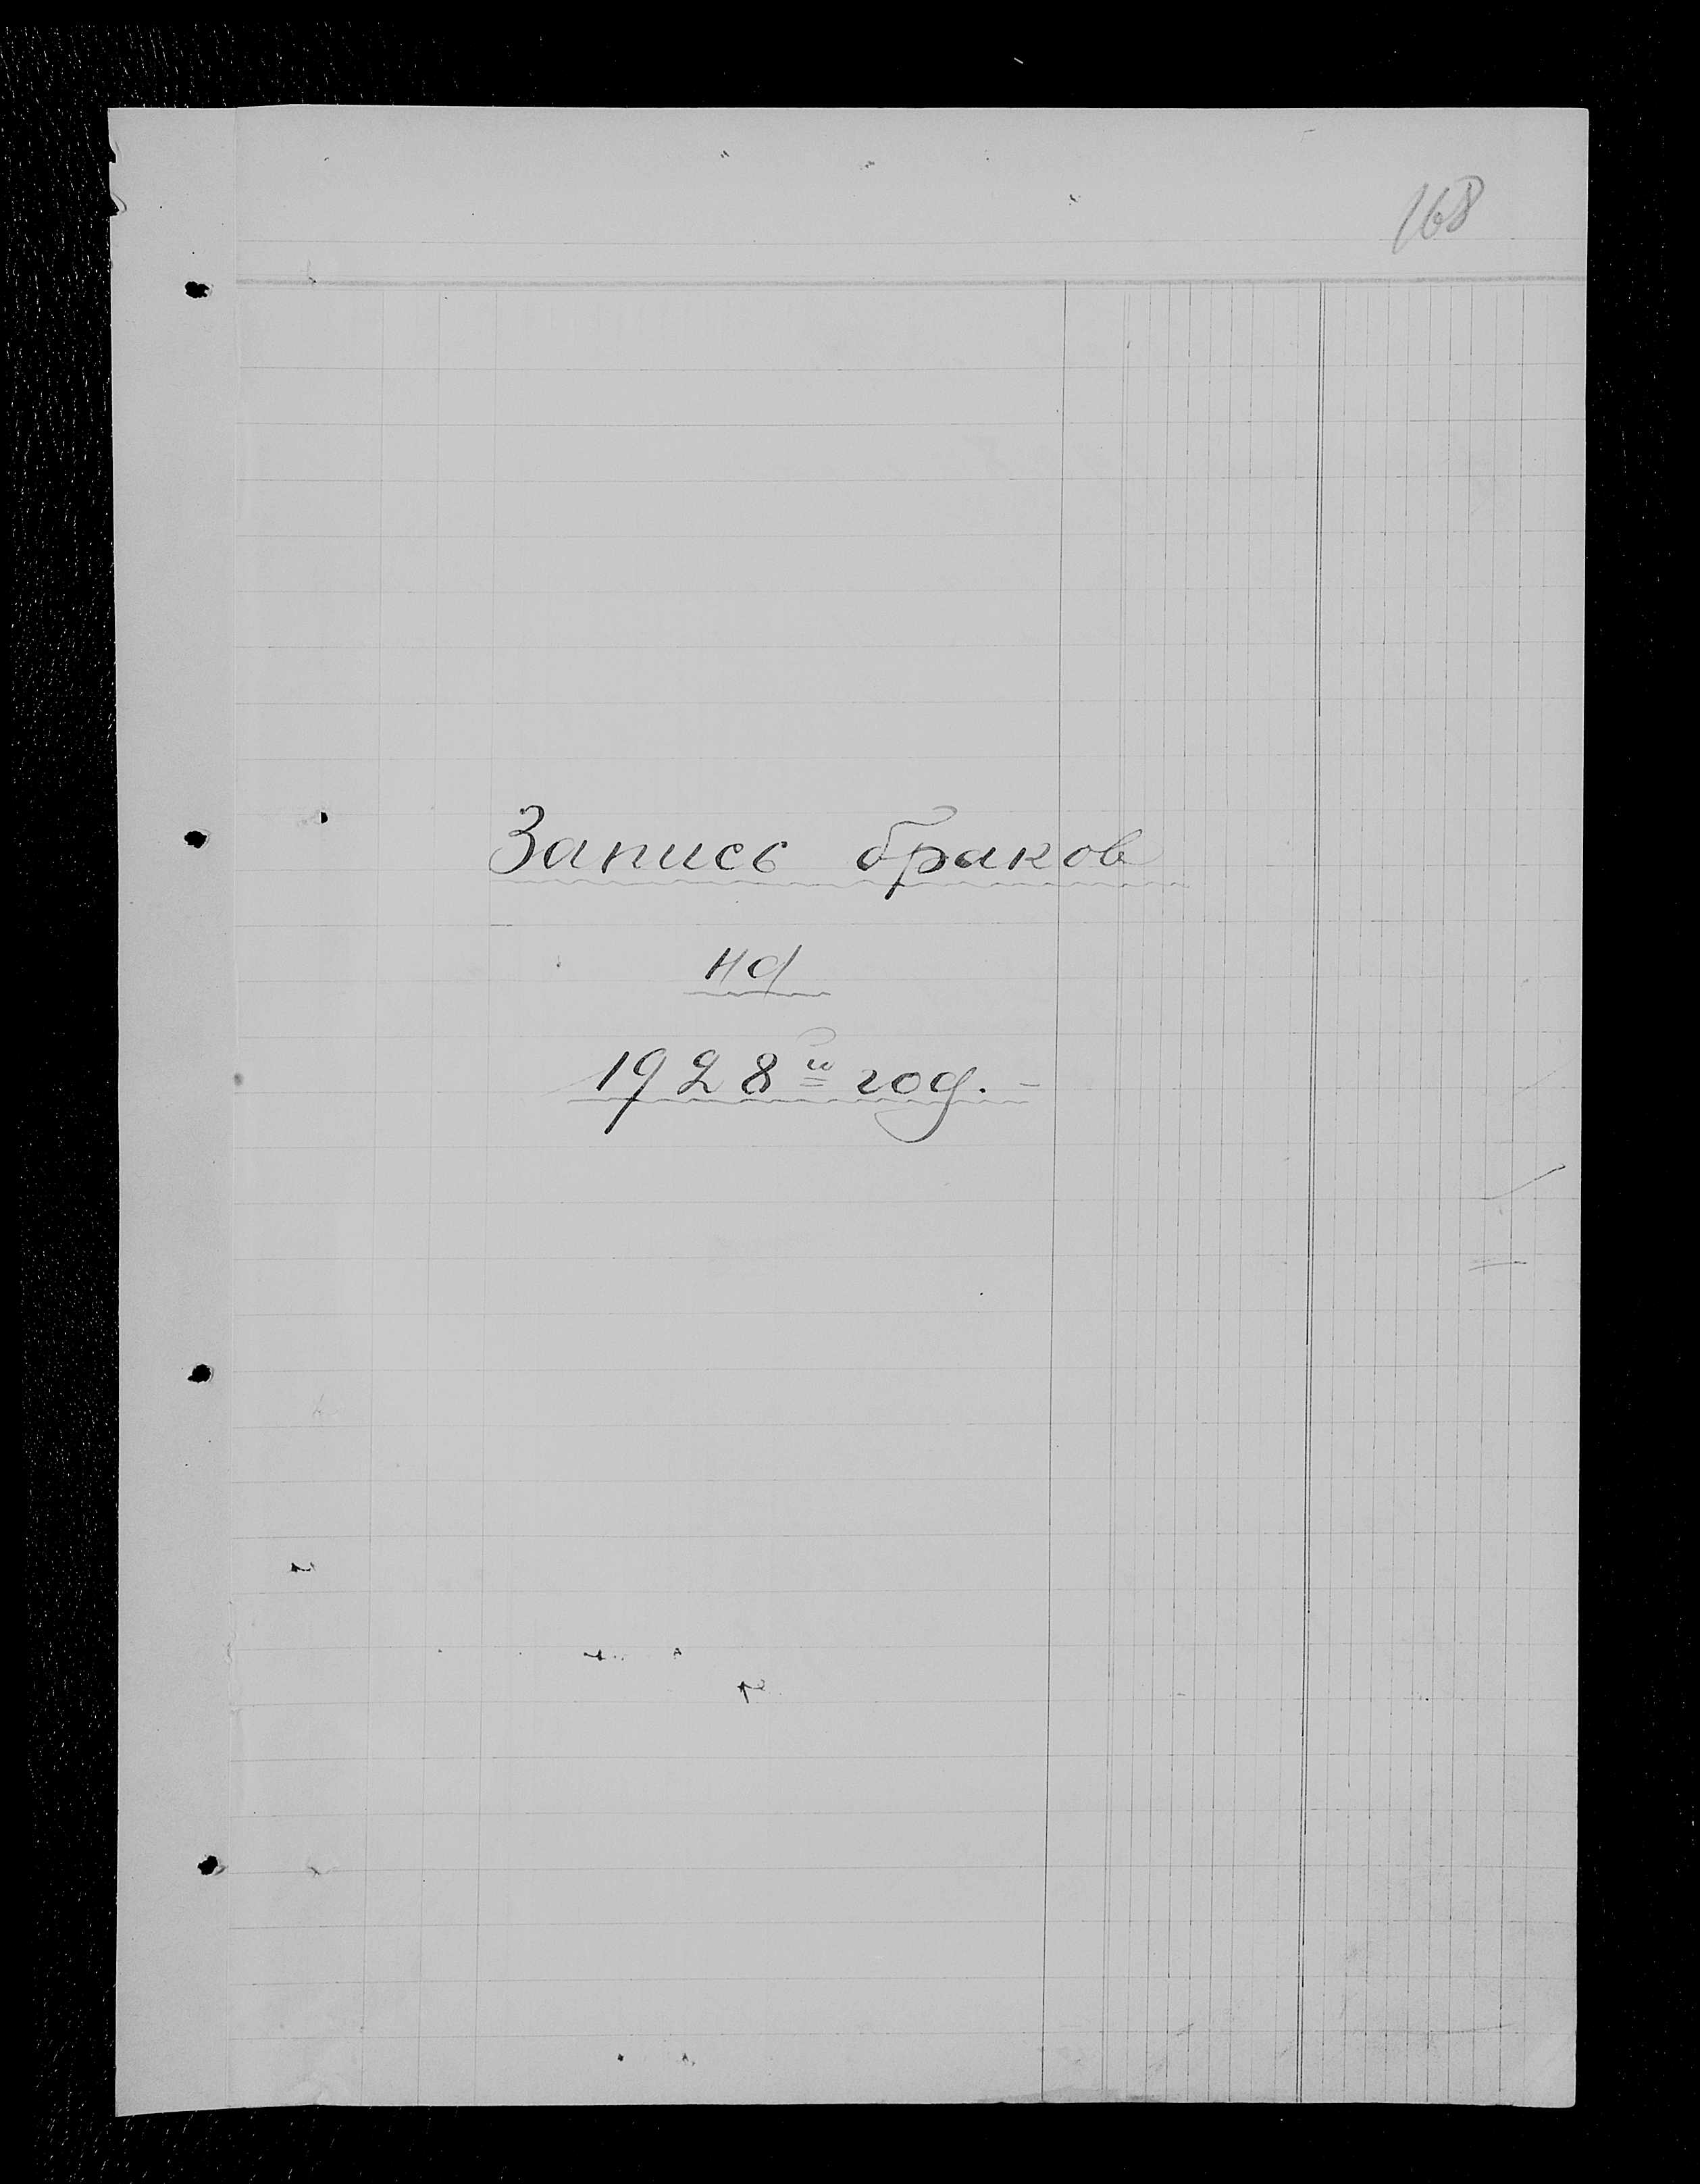 168
Запись браков
на
1928й год. –